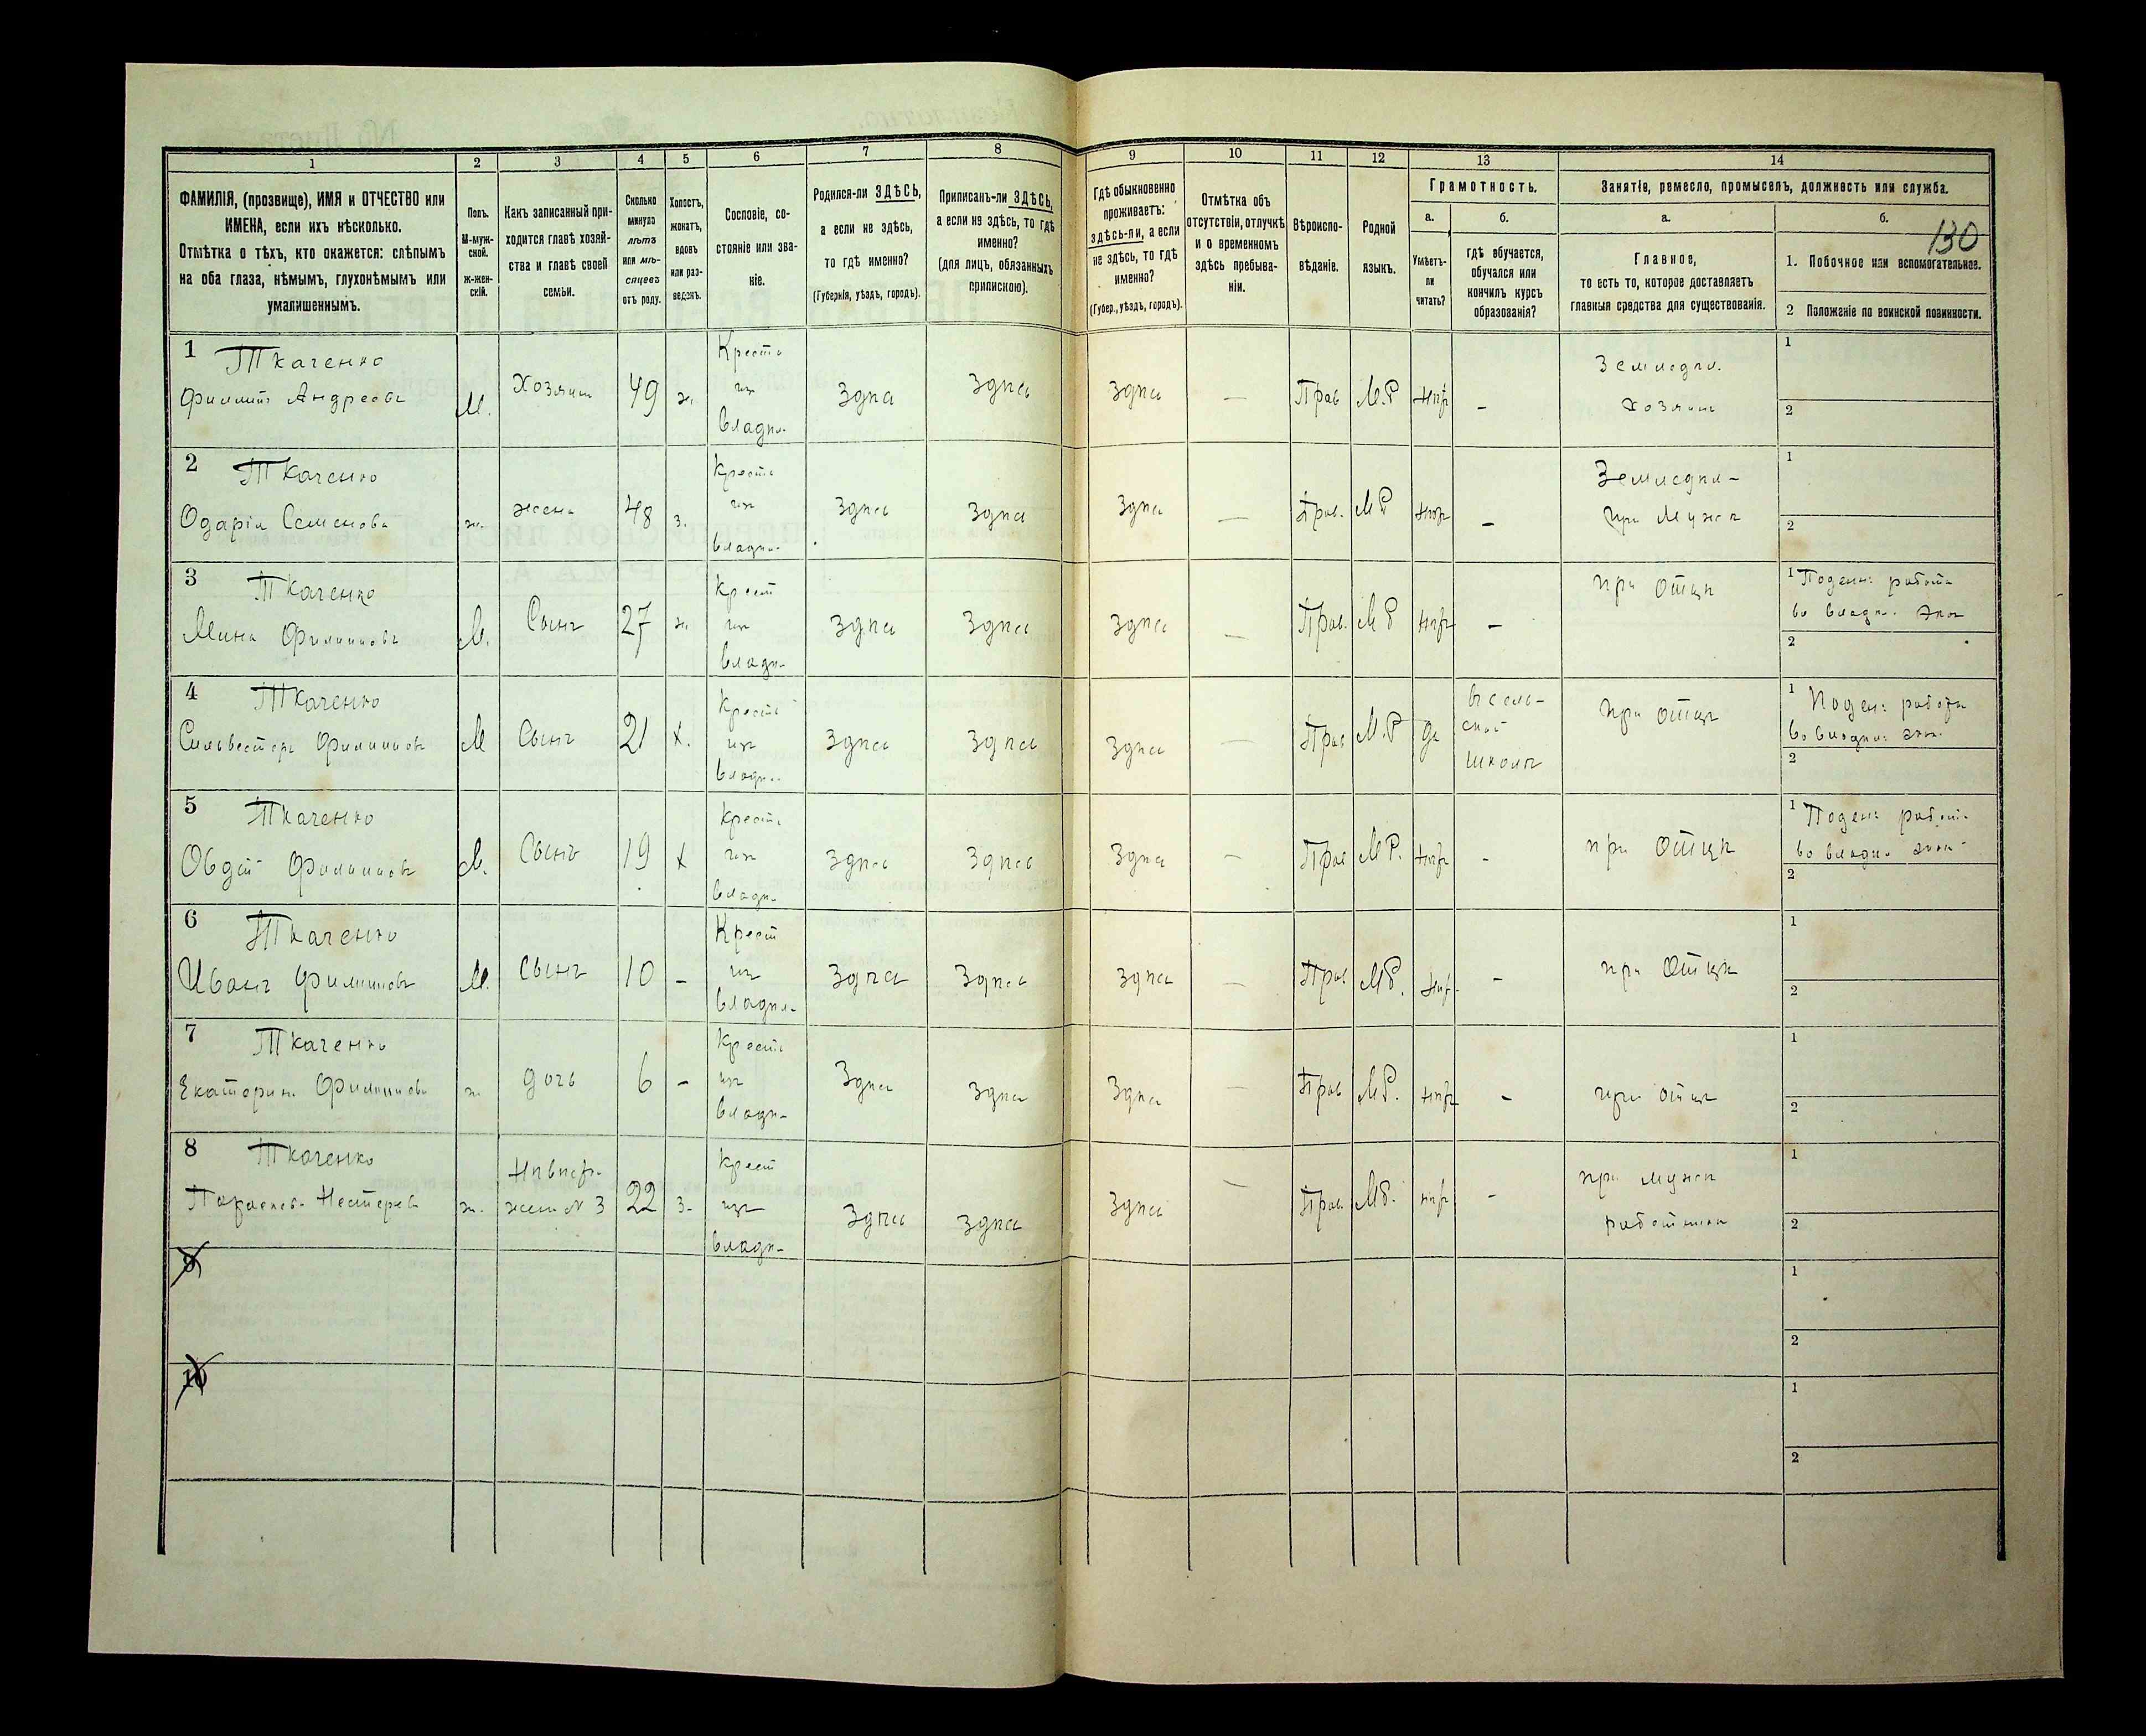 130
1 2 3 4 5 6 7 8 9 10 11 12 13 14
ФАМИЛІЯ, (прозвище), ИМЯ и ОТЧЕСТВО или
ИМЕНА, если ихъ нѣсколько.
Отмѣтка о тѣхъ, кто окажется: слѣпымъ
на оба глаза, нѣмымъ, глухонѣмымъ или
умалишеннымъ.
Полъ.
М-муж-
ской.
Ж-жен-
скій.
Какъ записанный при-
ходится главѣ хозяй-
ства и главѣ своей
семьи.
Сколько
минуло
лѣтъ
или мѣ-
сяцевъ
отъ роду.
Холостъ,
женатъ,
вдовъ
или раз-
веденъ.
Сословіе, со-
стояніе или зва-
ніе.
Родился-ли ЗДѢСЬ,
а если не здѣсь,
то гдѣ именно?
(Губернія, уѣздъ, городъ).
Приписанъ-ли ЗДѢСЬ,
а если не здѣсь, то гдѣ
именно?
(для лицъ, обязанныхъ
припискою).
Гдѣ обыкновенно
проживаетъ:
здѣсь-ли, а если
не здѣсь, то гдѣ
именно?
(Губер., уѣздъ, городъ).
Отмѣтка объ
отсутствіи, отлучкѣ
и о временномъ
здѣсь пребыва-
ніи.
Вѣроиспо-
вѣданіе.
Родной
языкъ.
Грамотность.
а.
Умѣетъ-
ли
читать?
б.
гдѣ обучается,
обучался или
кончилъ курсъ
образованія?
Занятіе, ремесло, промыселъ, должность или служба.
а.
Главное,
то есть то, которое доставляетъ
главныя средства для существованія.
б.
1. Побочное или вспомогательное.
2 Положеніе по воинской повинности.
1 Ткаченко
Филиппъ Андреевъ
М.
Хозяин
49
ж.
Крестъ
изъ
владѣл.
Здѣсь
Здѣсь
Здѣсь
—
Прав
М.Р
нѣт
-
Земледѣл.
Хозяин
1
2
2 Ткаченко
Одарія Семенова
ж.
жена
48
з.
Крестъ
изъ
владѣ.
Здѣсь
Здѣсь
Здѣсь
—
Прав.
М Р
нѣт
-
Земледѣл-
при Мужѣ
1
2
3 Ткаченко
Мина Филиповъ
М.
Сынъ
27
ж
Крест
изъ
владѣ-
Здѣсь
Здѣсь
Здѣсь
—
Прав.
М Р
нѣт
-
при Отцѣ
1 Поден: работа
во владѣ. экон
2
4 Ткаченко
Сильвестръ Филиповъ
М
Сынъ
21
х.
Крестъ
изъ
владѣ.
Здѣсь
Здѣсь
Здѣсь
—
Прав
М.Р
да
въ сель-
ской
школѣ
при Отцѣ
1 Поден: работа
во владѣ: экон.
2
5 Ткаченко
Овдій Филиповъ
М.
Сынъ
19
х
Крестъ
изъ
владѣ-
Здѣсь
Здѣсь
Здѣсь
—
Прав
М Р.
нѣт
-
при Отцѣ
1 Поден: работа
во владѣ экон
2
6 Ткаченко
Иванъ Филиповъ
М.
Сынъ
10
-
Крест
изъ
владѣл-
Здѣсь
Здѣсь
Здѣсь
—
Прав
М Р.
нѣт
-
при Отцѣ
1
2
7 Ткаченко
Екатерина Филипова
ж.
дочь
6
-
Крестъ
изъ
владѣ-
Здѣсь
Здѣсь
Здѣсь
—
Прав
М Р.
нѣт
-
при Отцѣ
1
2
8 Ткаченко
Параскева Нестерова
ж.
жена № 3
22
з-
Крест
изъ
владѣ-
Здѣсь
Здѣсь
Здѣсь
—
Прав.
М Р.
нѣт
-
при мужѣ
работница
1
2
9
1
2
10
1
2